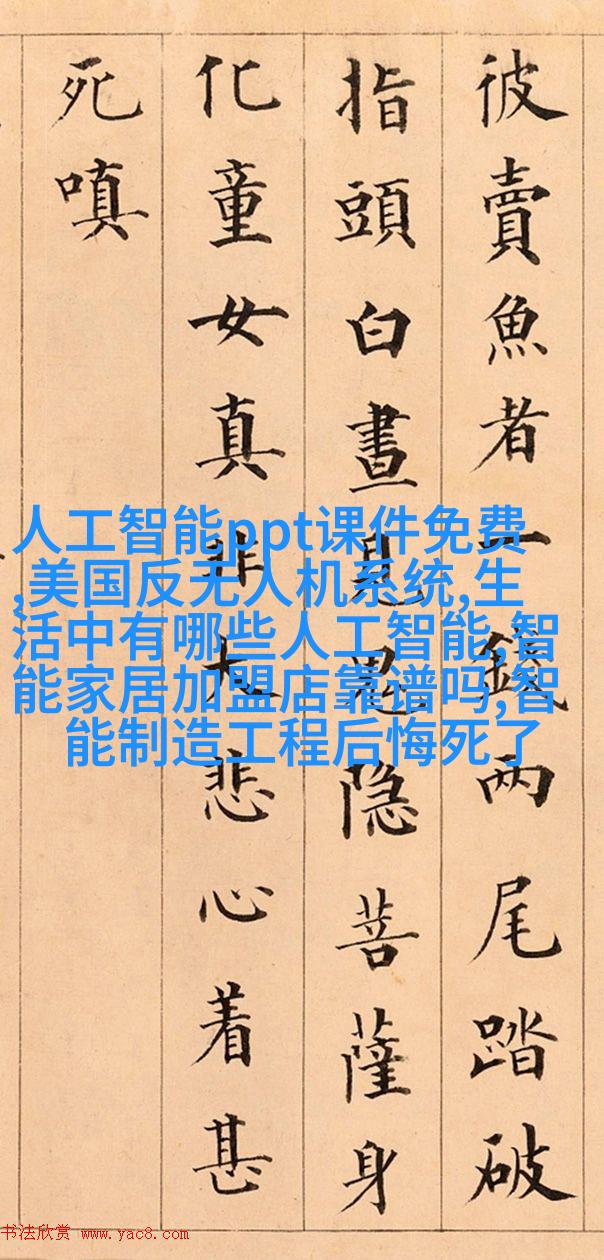 彼賣魚者一錢两尾踏破
指頭白晝見鬼隐菩薩身
化童女真非大悲心着甚
死嗔
人工智能ppt课件免费
,美国反无人机系统,生
活中有哪些人工智能,智
能家居加盟店靠谱吗,智
能制造工程后悔死了
书法欣赏 www.yac8.com